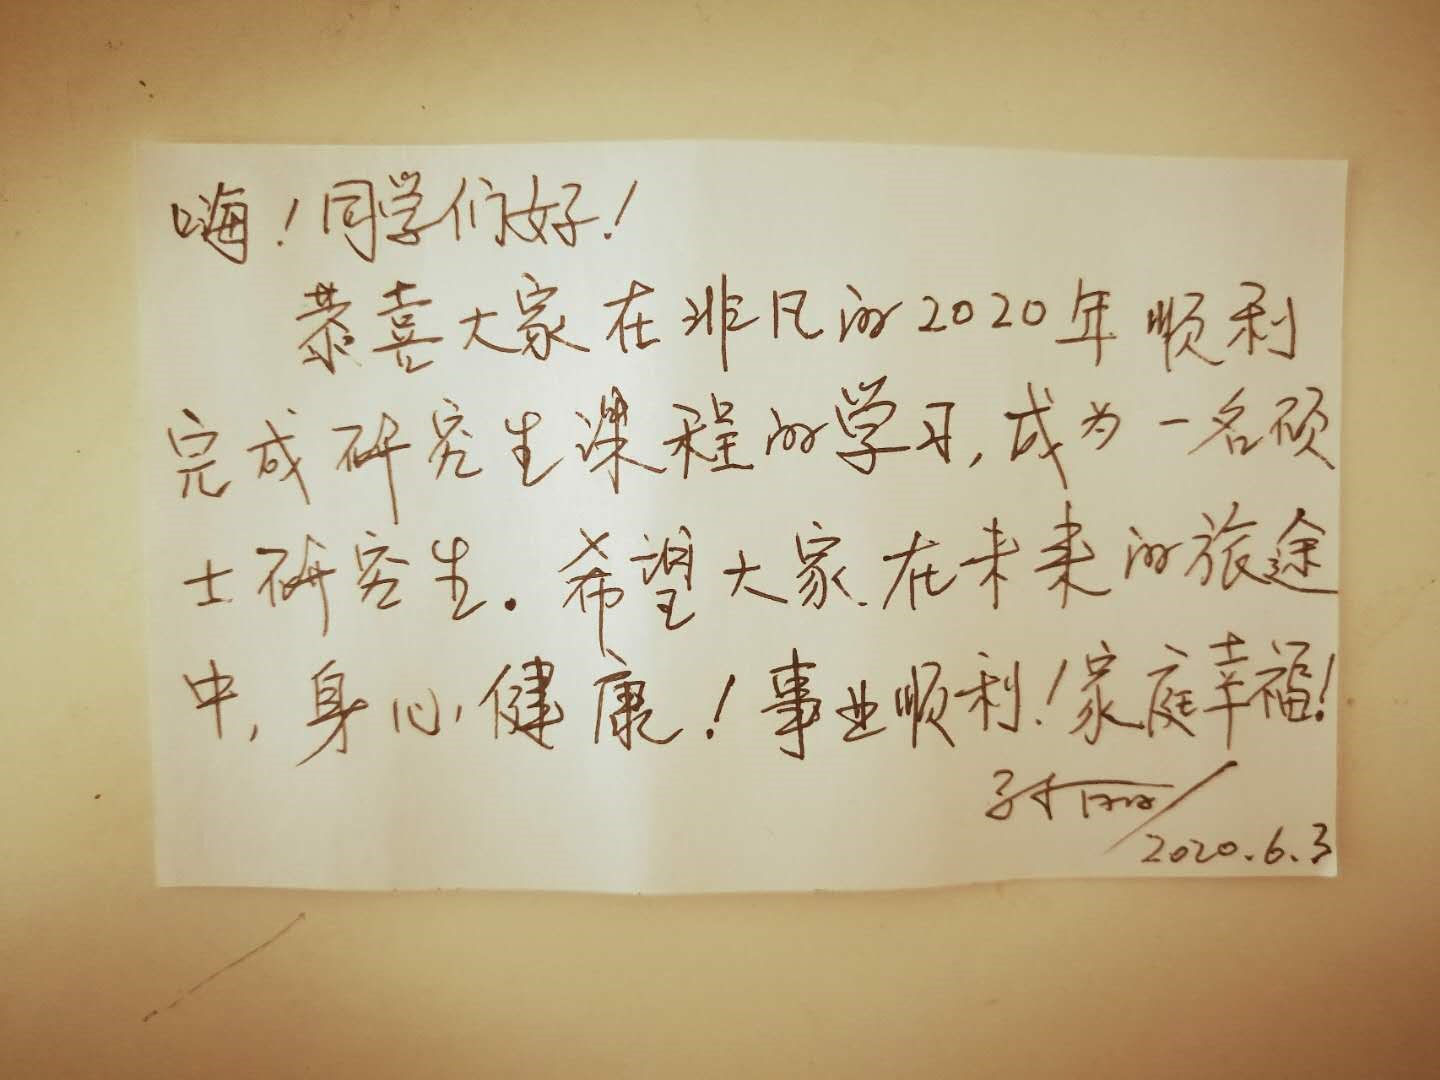 嗨！同学们好！
恭喜大家在非凡的2020年顺利
完成研究生课程的学习，成为一名硕
士研究生。希望大家在未来的旅途
中，身心健康！事业顺利！家庭幸福！
2020.6.3